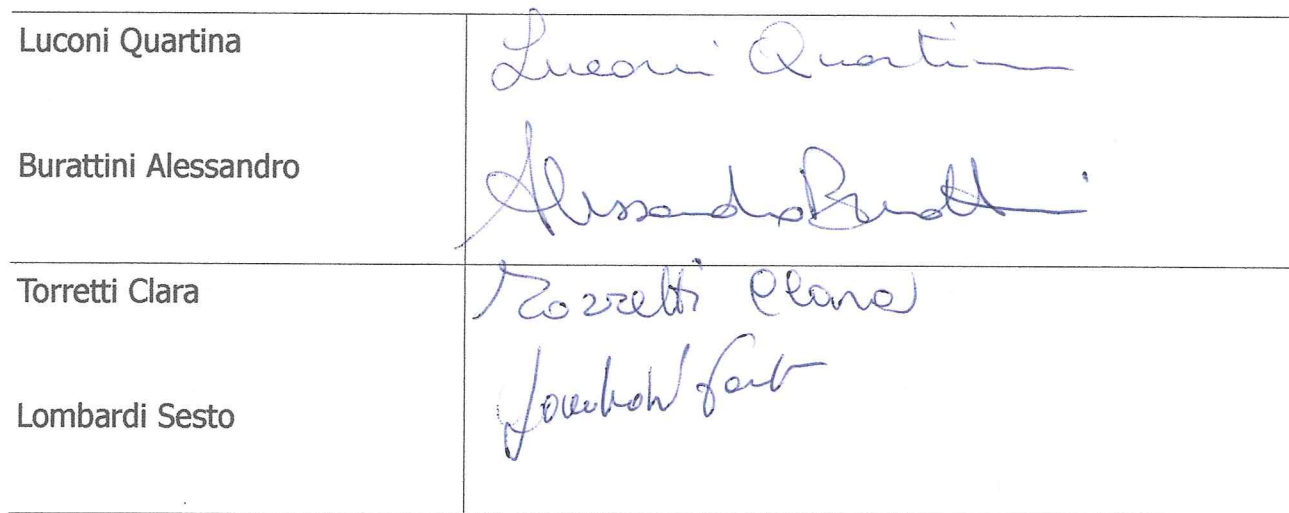 Luconi Quartina Luconi Quartina
Burattini Alessandro Alessandro Burattini
Torretti Clara Torretti Clara
Lombardi Sesto Lombardi Sesto